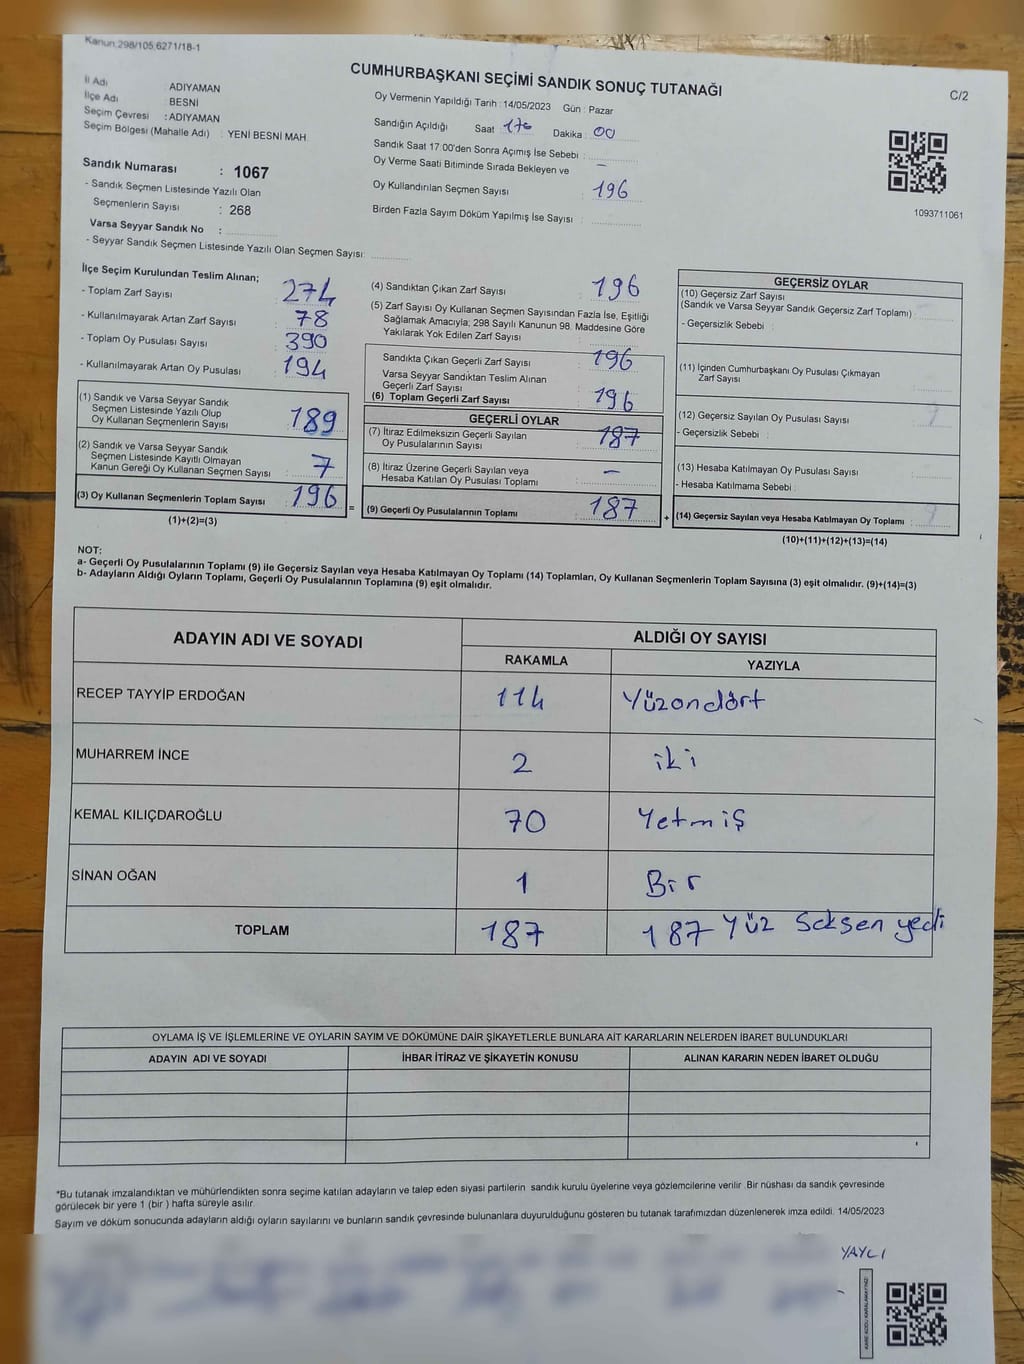 Kanun.298/105,6271/18-1
CUMHURBAŞKANI SEÇİMİ SANDIK SONUÇ TUTANAĞI
C/2
İl Adı ADIYAMAN
İlçe Adı : BESNİ
Seçim Çevresi : ADIYAMAN
Seçim Bölgesi (Mahalle Adı) : YENİ BESNİ MAH.
Oy Vermenin Yapıldığı Tarih : 14/05/2023 Gün : Pazar
Sandığın Açıldığı Saat Dakika : 00
Sandık Saat 17:00'den Sonra Açımış İse Sebebi :
Oy Verme Saati Bitiminde Sırada Bekleyen ve –
Oy Kullandırılan Seçmen Sayısı : 196
Birden Fazla Sayım Döküm Yapılmış İse Sayısı :
1093711061
Sandık Numarası : 1067
- Sandık Seçmen Listesinde Yazılı Olan
Seçmenlerin Sayısı : 268
Varsa Seyyar Sandık No :
- Seyyar Sandık Seçmen Listesinde Yazılı Olan Seçmen Sayısı:
İlçe Seçim Kurulundan Teslim Alınan;
- Toplam Zarf Sayısı : 274
- Kullanılmayarak Artan Zarf Sayısı : 78
- Toplam Oy Pusulası Sayısı : 390
- Kullanılmayarak Artan Oy Pusulası : 194
(1) Sandık ve Varsa Seyyar Sandık
Seçmen Listesinde Yazılı Olup
Oy Kullanan Seçmenlerin Sayısı : 189
(2) Sandık ve Varsa Seyyar Sandık
Seçmen Listesinde Kayıtlı Olmayan
Kanun Gereği Oy Kullanan Seçmen Sayısı : 7
(3) Oy Kullanan Seçmenlerin Toplam Sayısı : 196
(1)+(2)=(3)
=
(4) Sandıktan Çıkan Zarf Sayısı : 196
(5) Zarf Sayısı Oy Kullanan Seçmen Sayısından Fazla İse, Eşitliği
Sağlamak Amacıyla; 298 Sayılı Kanunun 98. Maddesine Göre
Yakılarak Yok Edilen Zarf Sayısı :
Sandıkta Çıkan Geçerli Zarf Sayısı : 196
Varsa Seyyar Sandıktan Teslim Alınan
Geçerli Zarf Sayısı :
(6) Toplam Geçerli Zarf Sayısı : 196
GEÇERLİ OYLAR
(7) İtiraz Edilmeksizin Geçerli Sayılan
Oy Pusulalarının Sayısı : 187
(8) İtiraz Üzerine Geçerli Sayılan veya –
Hesaba Katılan Oy Pusulası Toplamı :
(9) Geçerli Oy Pusulalarının Toplamı : 187
+
GEÇERSİZ OYLAR
(10) Geçersiz Zarf Sayısı
(Sandık ve Varsa Seyyar Sandık Geçersiz Zarf Toplamı) :
- Geçersizlik Sebebi :
(11) İçinden Cumhurbaşkanı Oy Pusulası Çıkmayan
Zarf Sayısı :
(12) Geçersiz Sayılan Oy Pusulası Sayısı : 9
- Geçersizlik Sebebi :
(13) Hesaba Katılmayan Oy Pusulası Sayısı :
- Hesaba Katılmama Sebebi :
(14) Geçersiz Sayılan veya Hesaba Katılmayan Oy Toplamı : 9
(10)+(11)+(12)+(13)=(14)
NOT:
a- Geçerli Oy Pusulalarının Toplamı (9) ile Geçersiz Sayılan veya Hesaba Katılmayan Oy Toplamı (14) Toplamları, Oy Kullanan Seçmenlerin Toplam Sayısına (3) eşit olmalıdır. (9)+(14)=(3)
b- Adayların Aldığı Oyların Toplamı, Geçerli Oy Pusulalarının Toplamına (9) eşit olmalıdır.
ADAYIN ADI VE SOYADI ALDIĞI OY SAYISI
RAKAMLA YAZIYLA
RECEP TAYYİP ERDOĞAN 114 Yüzondört
MUHARREM İNCE 2 iki
KEMAL KILIÇDAROĞLU 70 Yetmiş
SİNAN OĞAN 1 Bir
TOPLAM 187 187 Yüz Seksen yedi
OYLAMA İŞ VE İŞLEMLERİNE VE OYLARIN SAYIM VE DÖKÜMÜNE DAİR ŞİKAYETLERLE BUNLARA AİT KARARLARIN NELERDEN İBARET BULUNDUKLARI
ADAYIN ADI VE SOYADI İHBAR İTİRAZ VE ŞİKAYETİN KONUSU ALINAN KARARIN NEDEN İBARET OLDUĞU
*Bu tutanak imzalandıktan ve mühürlendikten sonra seçime katılan adayların ve talep eden siyasi partilerin sandık kurulu üyelerine veya gözlemcilerine verilir. Bir nüshası da sandık çevresinde
görülecek bir yere 1 (bir ) hafta süreyle asılır.
Sayım ve döküm sonucunda adayların aldığı oyların sayılarını ve bunların sandık çevresinde bulunanlara duyurulduğunu gösteren bu tutanak tarafımızdan düzenlenerek imza edildi. 14/05/2023
YAYCI
KARE KODU KARALAMAYINIZ!